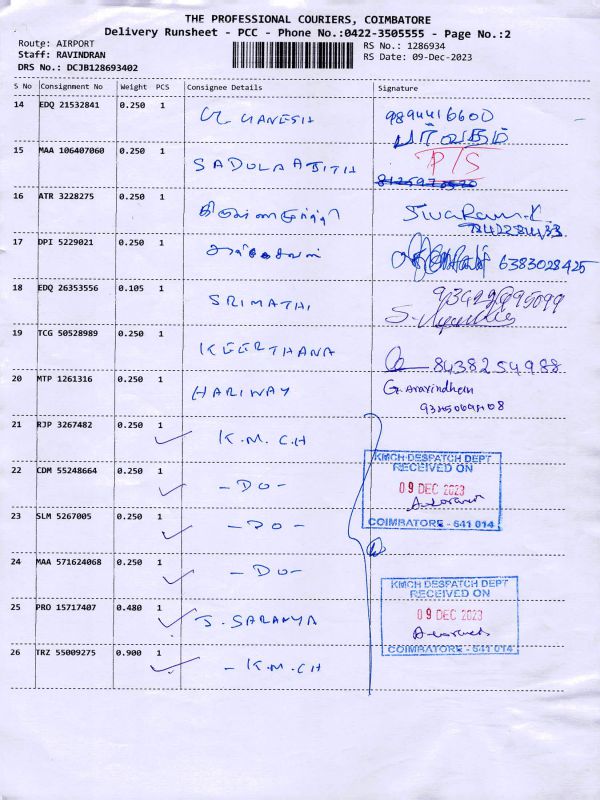 THE PROFESSIONAL COURIERS, COIMBATORE
Delivery Runsheet - PCC - Phone No.:0422-3505555 - Page No.:2
Route: AIRPORT
RS No.: 1286934
Staff: RAVINDRAN
RS Date: 09-Dec-2023
DRS No.: DCJB128693402
S No Consignment No Weight PCS Consignee Details Signature
14 EDQ 21532841 0.250 1 GANESH 9894416600
15 MAA 106407060 0.250 1 P/S
16 ATR 3228275 0.250 1 Sivaram.K
17 DPI 5229021 0.250 1 6383028425
18 EDQ 26353556 0.105 1 SRIMATHI
19 TCG 50528989 0.250 1 KEERTHANA 8438254988
20 MTP 1261316 0.250 1 HARIWAY G. Aravindhan
21 RJP 3267482 0.250 1 K.M.C.H
KMCH DESPATCH DEPT
RECEIVED ON
22 CDM 55248664 0.250 1 -DO- 09 DEC 2023
23 SLM 5267005 0.250 1 -DO- COIMBATORE - 641 014
24 MAA 571624068 0.250 1 -DO-
KMCH DESPATCH DEPT
RECEIVED ON
25 PRO 15717407 0.480 1 S. SARANYA 09 DEC 2023
COIMBATORE - 641 014
26 TRZ 55009275 0.900 1 - K.M.CH